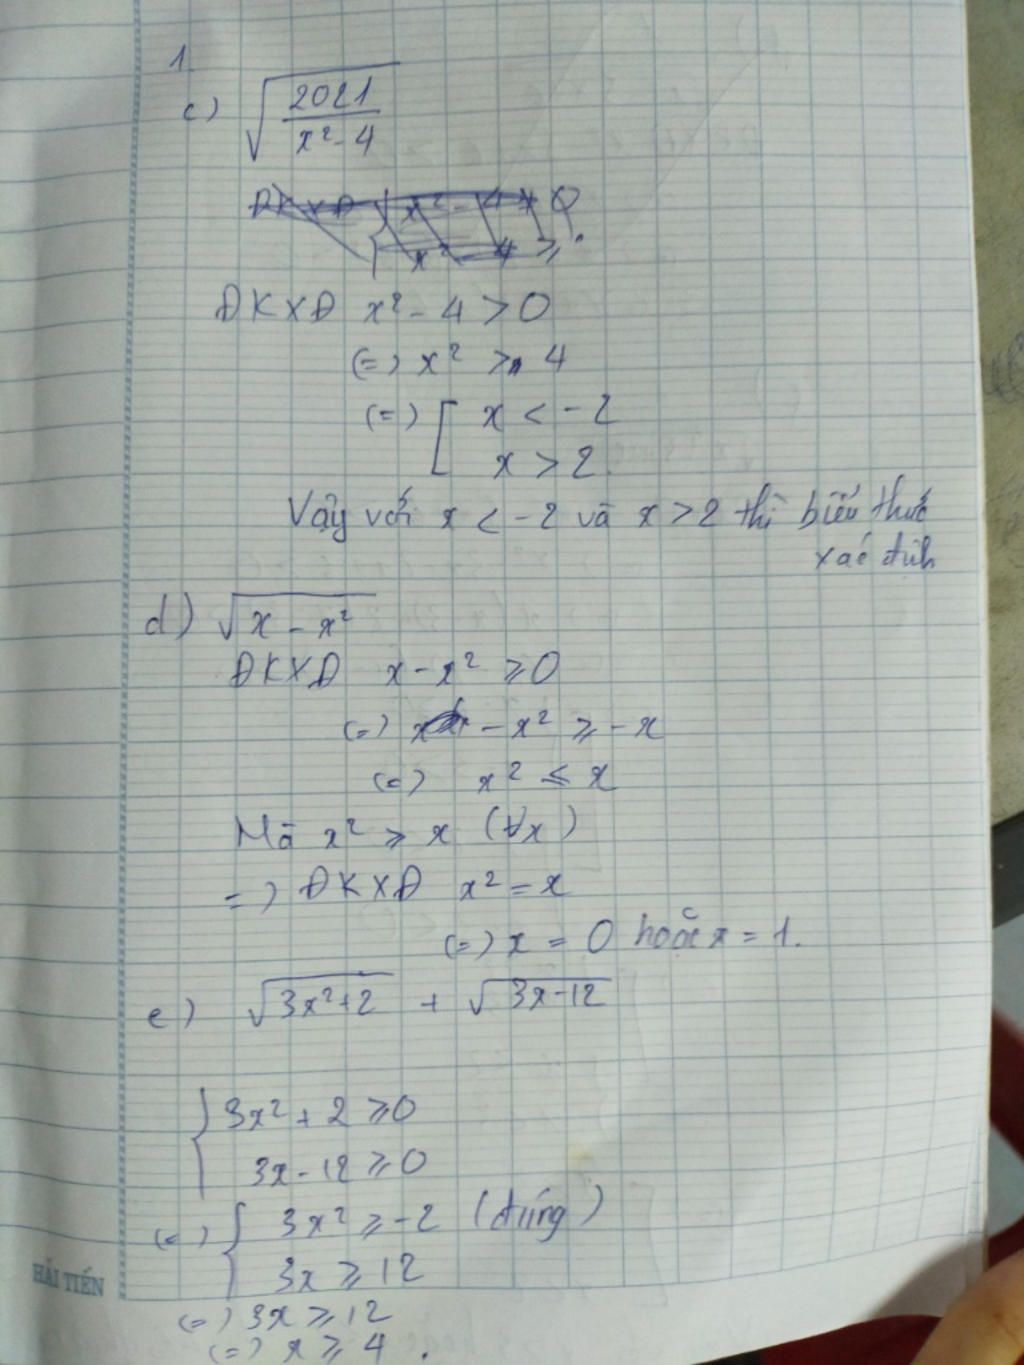 1
c) √(2021/(x² - 4))
ĐKXĐ x² - 4 > 0
(=) x² > 4
(=) [ x < -2
x > 2
Vậy với x < -2 và x > 2 thì biểu thức
xác định
d) √(x - x²)
ĐKXĐ x - x² ≥ 0
(=) - x² ≥ - x
(=) x² ≤ x
Mà x² ≥ x (∀x)
=) ĐKXĐ x² = x
(=) x = 0 hoặc x = 1.
e) √(3x²+2) + √(3x-12)
{ 3x² + 2 ≥ 0
3x - 12 ≥ 0
(=) { 3x² ≥ -2 (đúng)
3x ≥ 12
(=) 3x ≥ 12
(=) x ≥ 4.
HẢI TIẾN